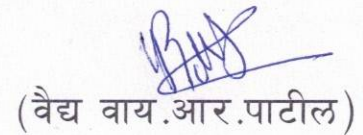 (वैद्य वाय.आर.पाटील)